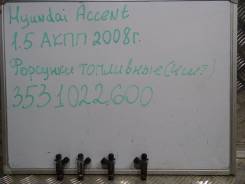 Hyundai Accent
1.5 АКПП 2008г.
Форсунки топливные (4шт)
3531022600